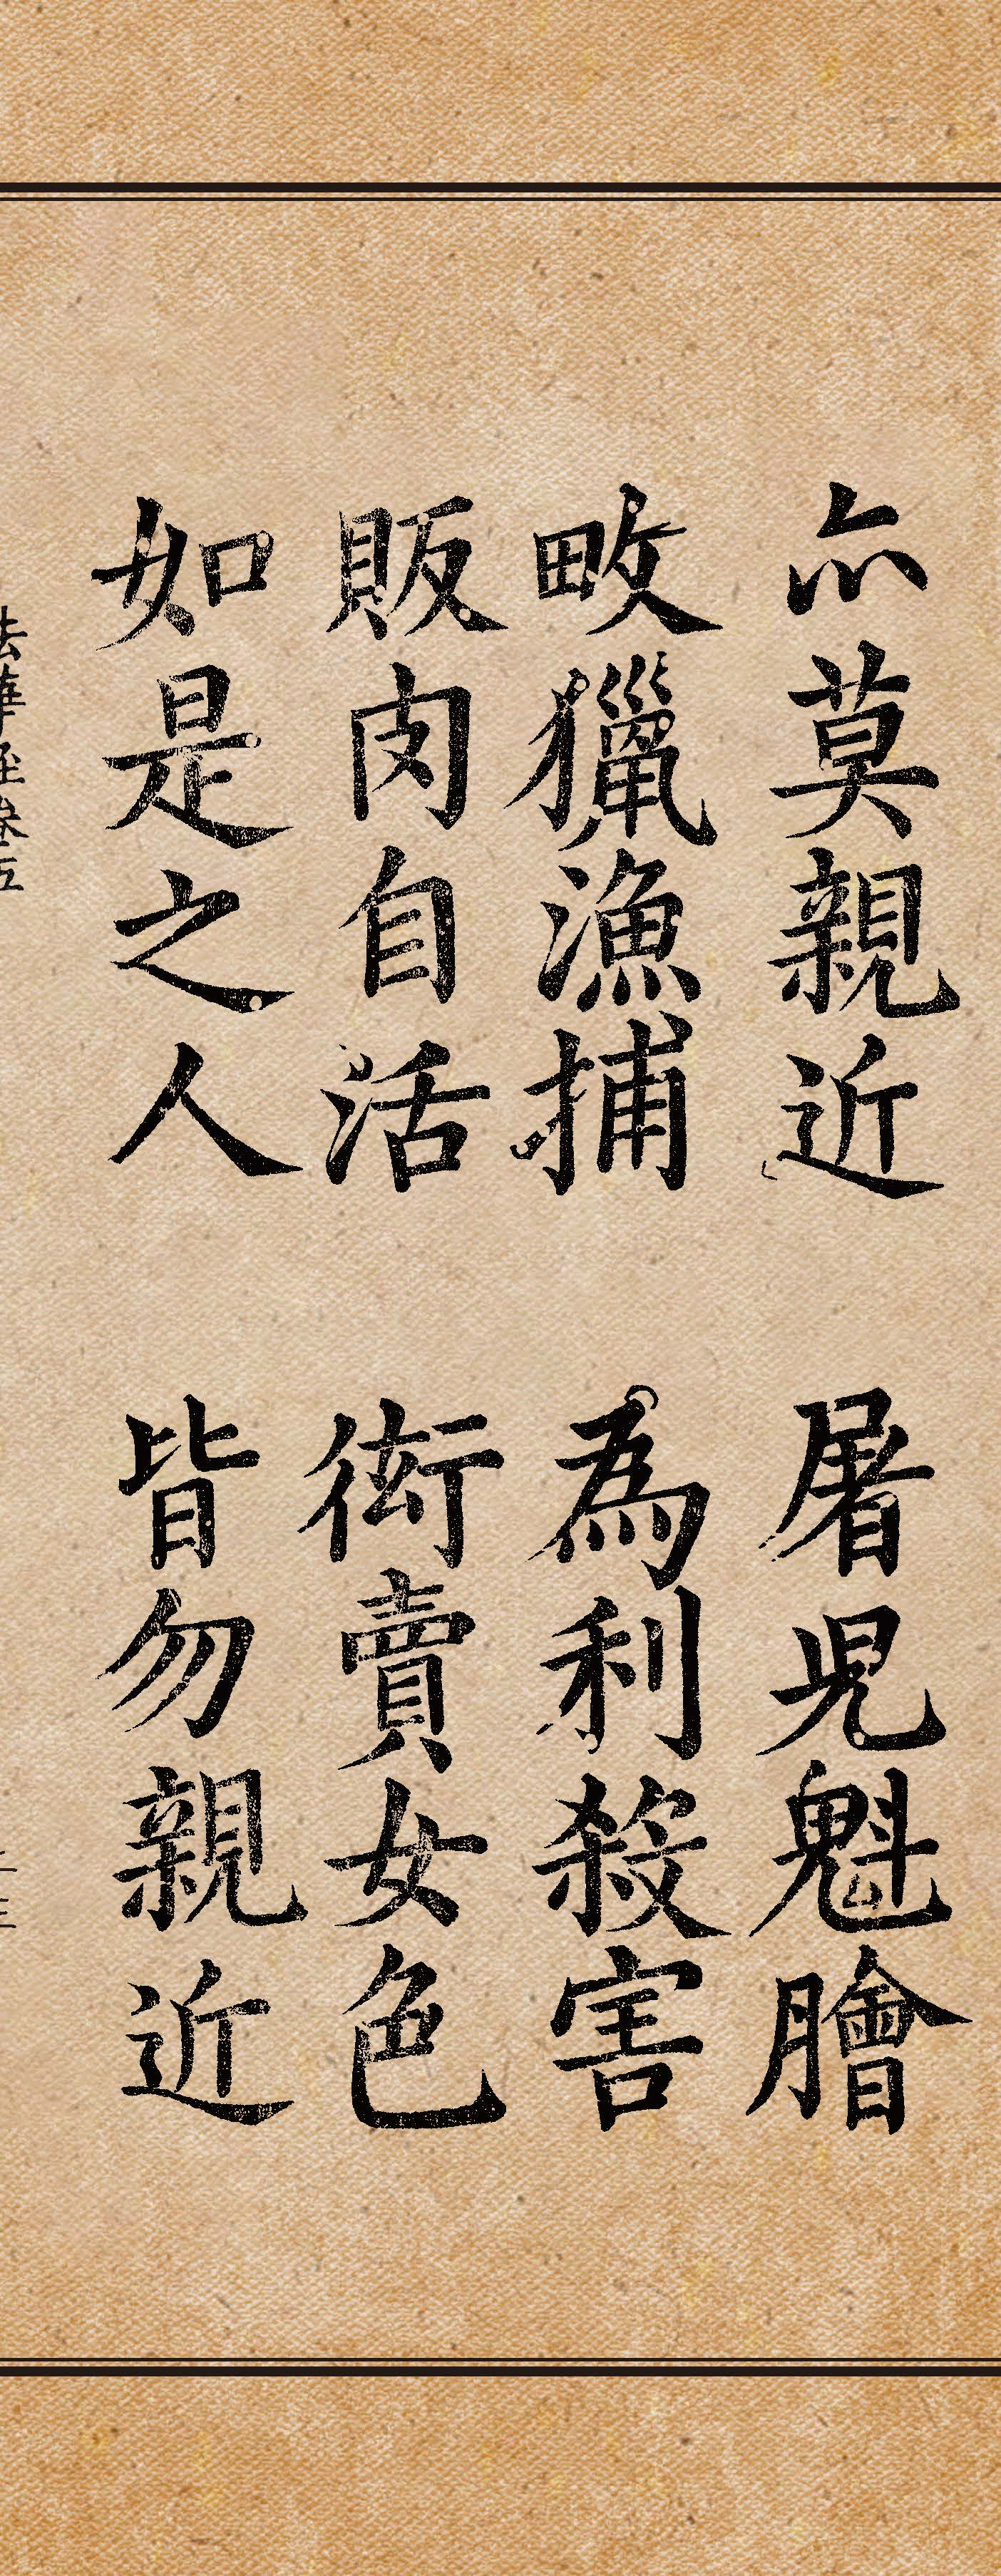 亦莫親近 屠兒魁膾
畋獵漁捕 為利殺害
販肉自活 衒賣女色
如是之人 皆勿親近
法華經卷五